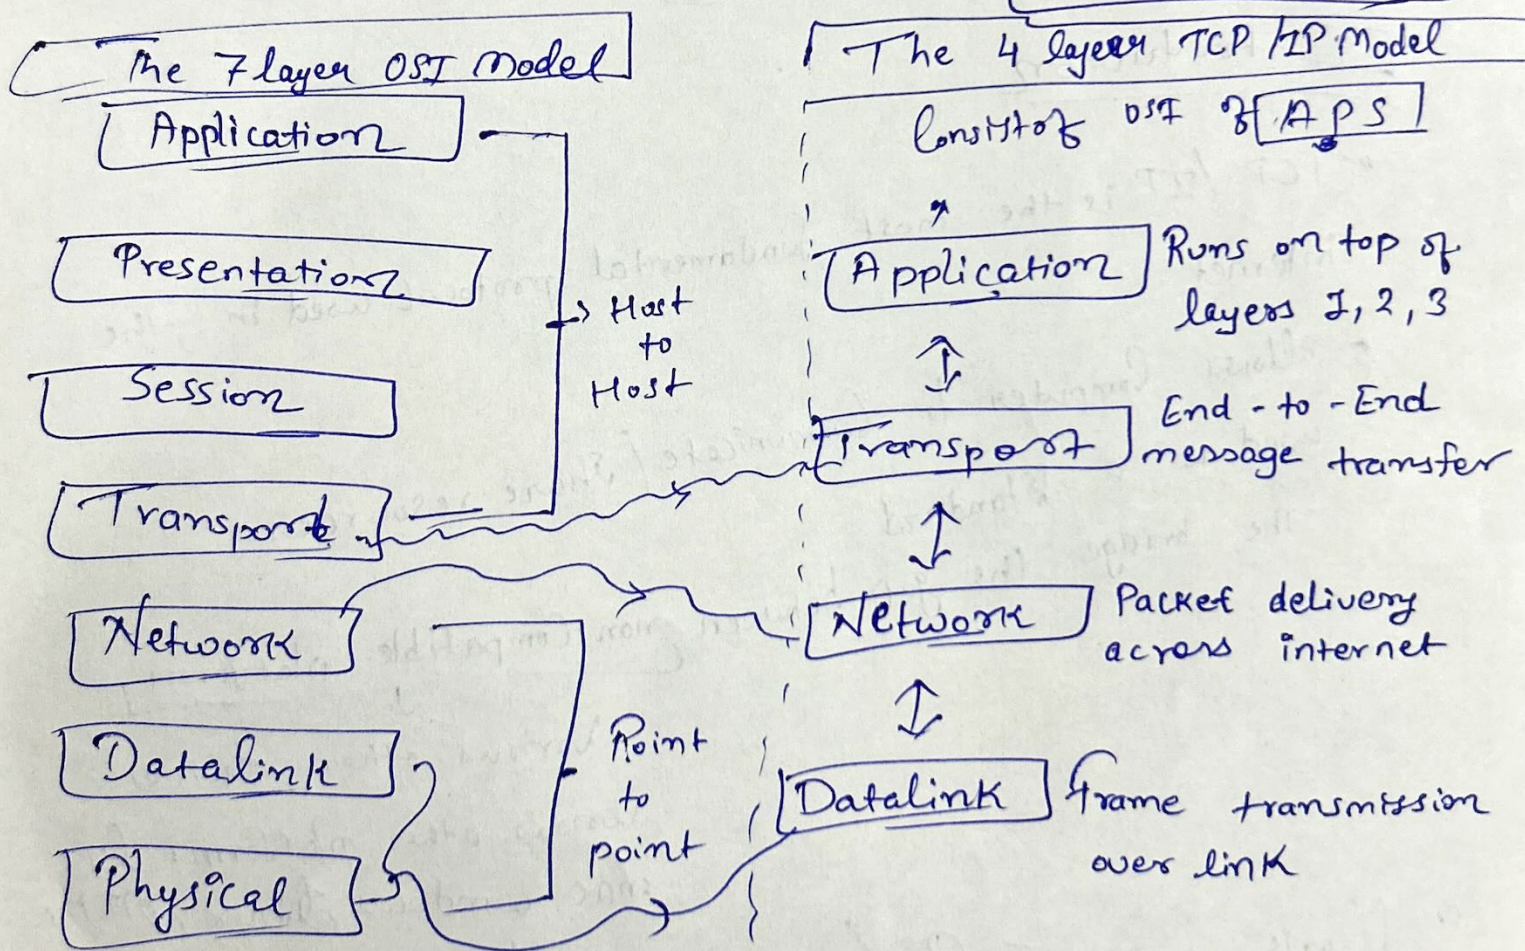 The 7 layer OSI Model
Application
Presentation
Session
Transport
Network
Datalink
Physical
Host
to
Host
Point
to
point
The 4 layer TCP/IP Model
Consist of OSI of APS
Application
Runs on top of
layers 1, 2, 3
Transport
End-to-End
message transfer
Network
Packet delivery
across internet
Datalink
frame transmission
over link